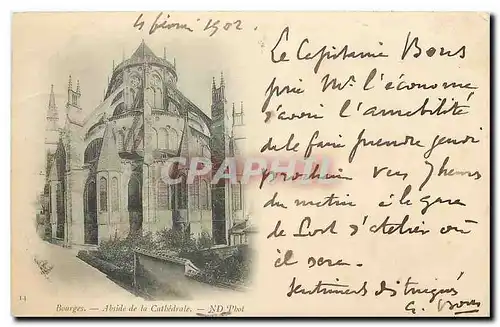 4 février 1902.
Le Capitaine Bous
prie Mr l'économe
d'avoir l'amabilité
de le faire prendre jeudi
prochain vers 7 heures
du matin à la gare
de où
il sera.
Sentiments distingués
G. Bous
CPArama.com
14
Bourges. — Abside de la Cathédrale. — ND Phot